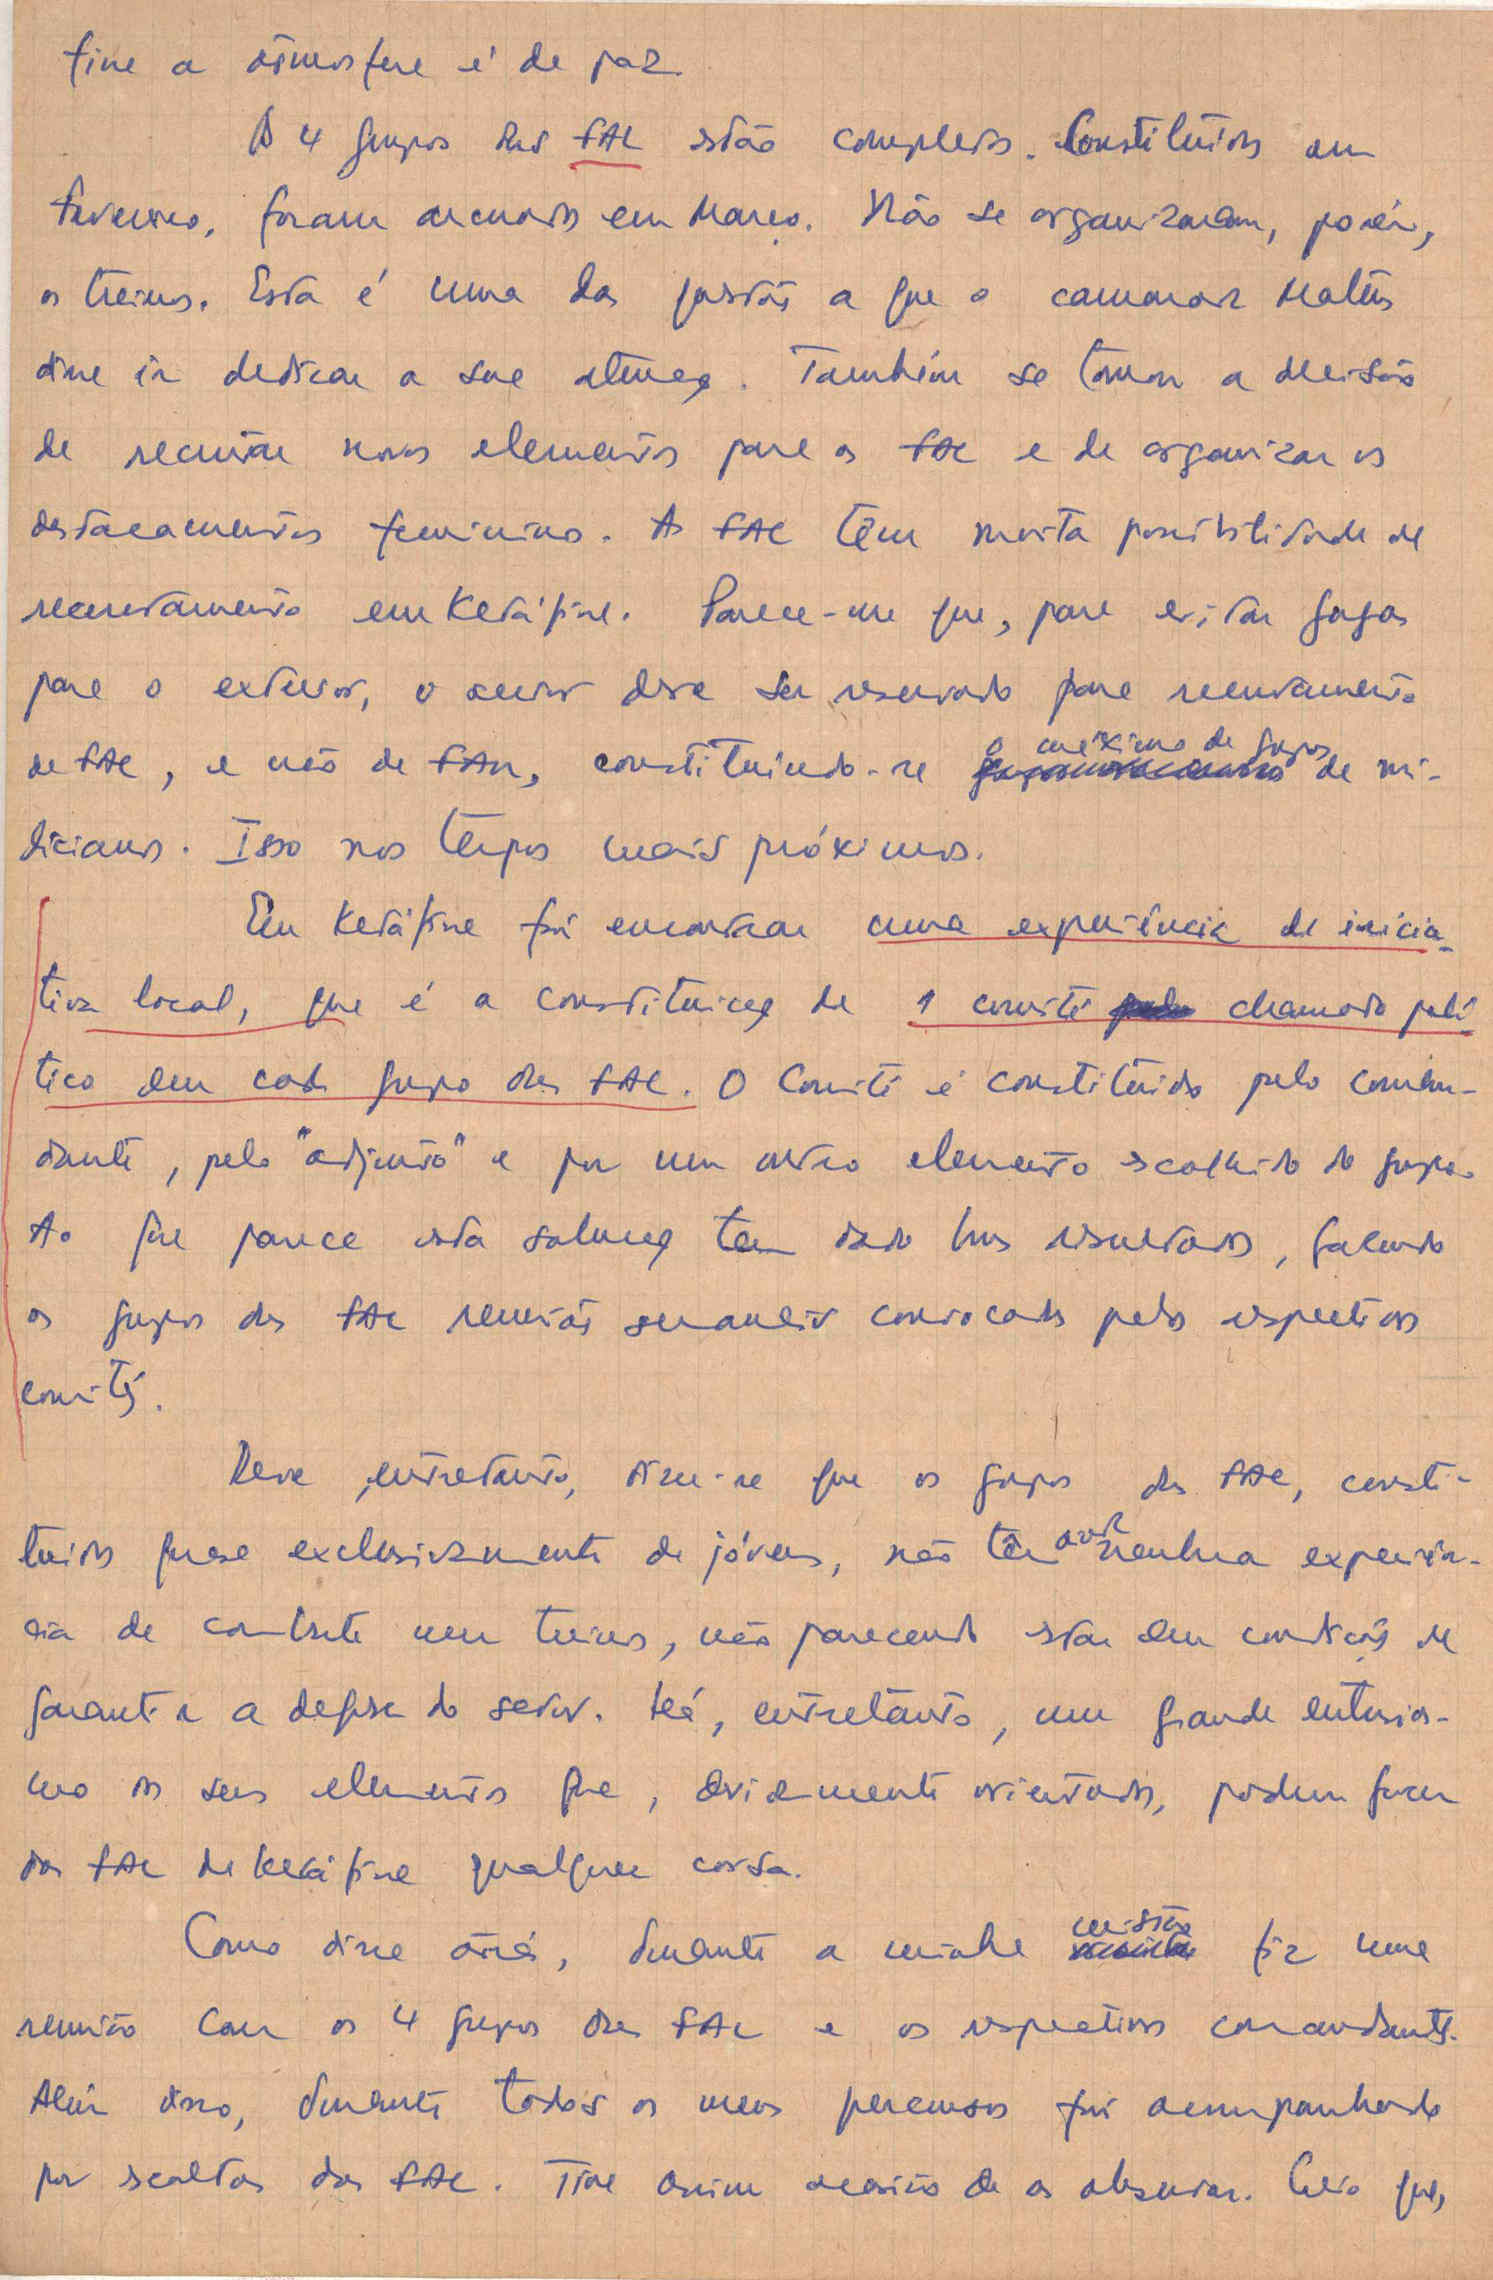 fine a atmosfera é de paz.
Os 4 grupos das FAL estão completos. Constituídos em
Fevereiro, foram armados em Março. Não se organizaram, porém,
os treinos. Esta é uma das questões a que o camarada Mateus
disse ir dedicar a sua atenção. Também se tomou a decisão
de recrutar novos elementos para as FAL e de organizar os
destacamentos femininos. As FAL têm muita possibilidade de
recrutamento em Ketáfine. Parece-me que, para evitar fugas
para o exterior, o sector deve ser reservado para recrutamento
de FAL, e não de FARP, constituindo-se o máximo de grupos de mi-
licianos. Isso nos tempos mais próximos.
Em Ketáfine fui encontrar uma experiência de inicia-
tiva local, que é a constituição de 1 comité chamado polí
tico em cada grupo das FAL. O Comité é constituído pelo coman-
dante, pelo "adjunto" e por um outro elemento escolhido do grupo.
Ao que parece esta solução tem dado bons resultados, fazendo
os grupos das FAL reuniões semanais convocadas pelos respectivos
comités.
Deve, entretanto, dizer-se que os grupos das FAL, consti-
tuídos quase exclusivamente de jóvens, não têm ainda nenhuma experiên-
cia de combate nem treinos, não parecendo estar em condições de
garantir a defesa do sector. Há, entretanto, um grande entusias-
mo dos seus elementos que, devidamente orientados, podem fazer
das FAL de Ketáfine qualquer coisa.
Como disse atrás, durante a minha missão fiz uma
reunião com os 4 grupos das FAL e os respectivos comandantes.
Além disso, durante todos os meus percursos fui acompanhado
por escoltas das FAL. Tive assim ocasião de os observar. Creio que,